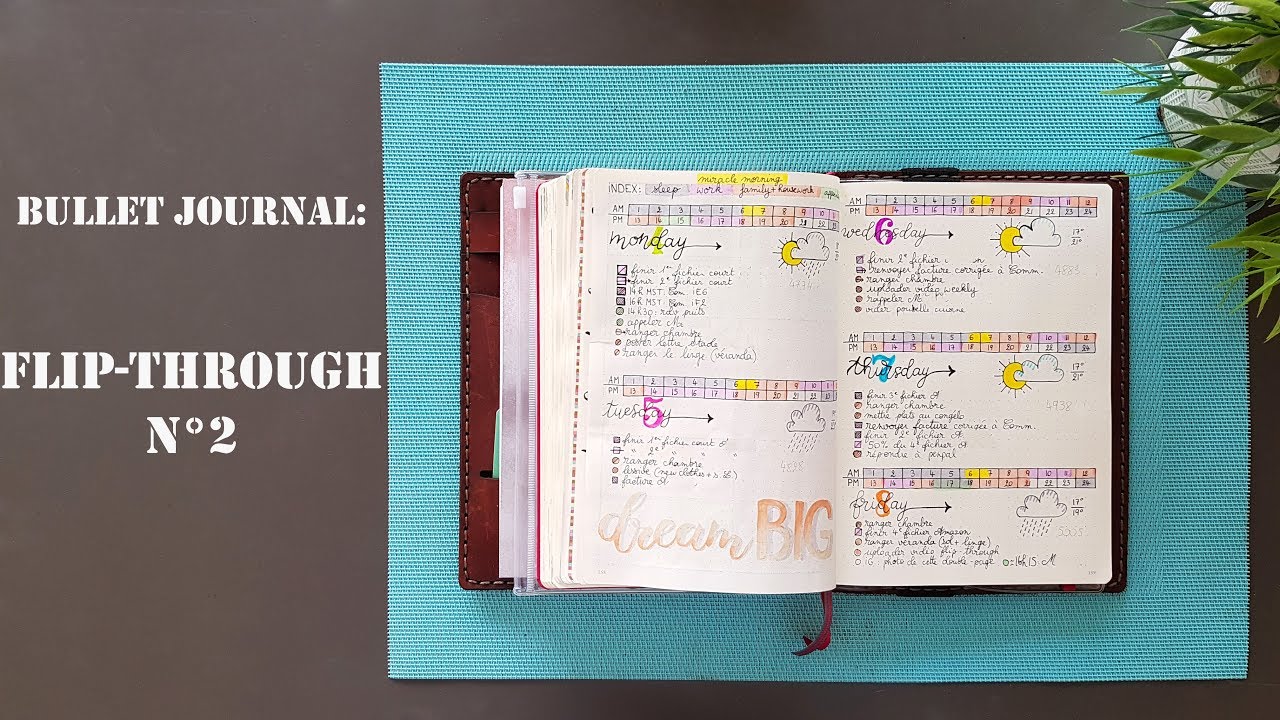 BULLET JOURNAL:
FLIP-THROUGH
N°2
miracle morning
INDEX: sleep work family+housework
AM 1 2 3 4 5 6 7 8 9 10 11
PM 13 14 15 16 17 18 19 20 21 22 23
monday
finir 1er fichier court
finir 2e fichier court
14h MST
16h MST
appeler
ranger chambre
poster lettre Stade
ranger le linge (véranda)
AM 1 2 3 4 5 6 7 8 9 10 11
PM 13 14 15 16 17 18 19 20 21 22 23
tuesday 5
finir 1er fichier court
ranger chambre
(new clothes
facture
dream BIG
AM 1 2 3 4 5 6 7 8 9 10 11 12
PM 13 14 15 16 17 18 19 20 21 22 23 24
wednesday 6
17°
21°
finir 2e fichier
renvoyer facture corrigée à Comm.
ranger chambre
uploader vidéo weekly
rappeler
vider poubelle cuisine
AM 1 2 3 4 5 6 7 8 9 10 11 12
PM 13 14 15 16 17 18 19 20 21 22 23 24
thursday 7
17°
21°
4938
finir 3e fichier
ranger chambre
mettre plats au congelo
renvoyer facture corrigée à Comm.
finir 2e fichier
50% du 4e fichier
répondre à
AM 1 2 3 4 5 6 7 8 9 10 11 12
PM 13 14 15 16 17 18 19 20 21 22 23 24
friday 8
17°
19°
ranger chambre
finir 4e fichier Amazon
ranger véranda (sol + linge)
uploader vidéo flip through
photo de cette double-page
=16h15